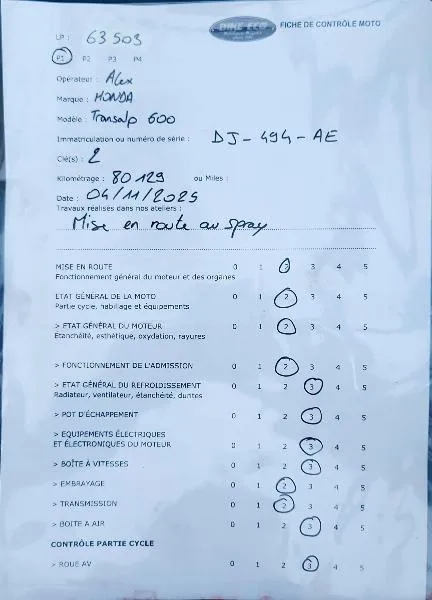 BIKE-ECO
FICHE DE CONTRÔLE MOTO
LP : 63503
P1 P2 P3 P4
Opérateur : Alex
Marque : HONDA
Modèle : Transalp 600
Immatriculation ou numéro de série : DJ-494-AE
Clé(s) : 2
Kilométrage : 80129 ou Miles :
Date : 04/11/2025
Travaux réalisés dans nos ateliers :
Mise en route au spray
MISE EN ROUTE 0 1 2 3 4 5
Fonctionnement général du moteur et des organes
ETAT GÉNÉRAL DE LA MOTO 0 1 2 3 4 5
Partie cycle, habillage et équipements
> ETAT GÉNÉRAL DU MOTEUR 0 1 2 3 4 5
Etanchéité, esthétique, oxydation, rayures
> FONCTIONNEMENT DE L'ADMISSION 0 1 2 3 4 5
> ETAT GÉNÉRAL DU REFROIDISSEMENT 0 1 2 3 4 5
Radiateur, ventilateur, étanchéité, durites
> POT D'ÉCHAPPEMENT 0 1 2 3 4 5
> EQUIPEMENTS ÉLECTRIQUES
ET ÉLECTRONIQUES DU MOTEUR 0 1 2 3 4 5
> BOÎTE À VITESSES 0 1 2 3 4 5
> EMBRAYAGE 0 1 2 3 4 5
> TRANSMISSION 0 1 2 3 4 5
> BOITE A AIR 0 1 2 3 4 5
CONTRÔLE PARTIE CYCLE
> ROUE AV 0 1 2 3 4 5